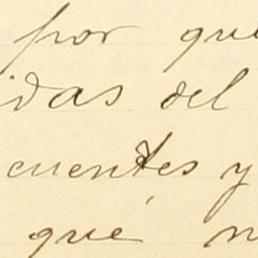 por que
idas del
cuentes y
que n